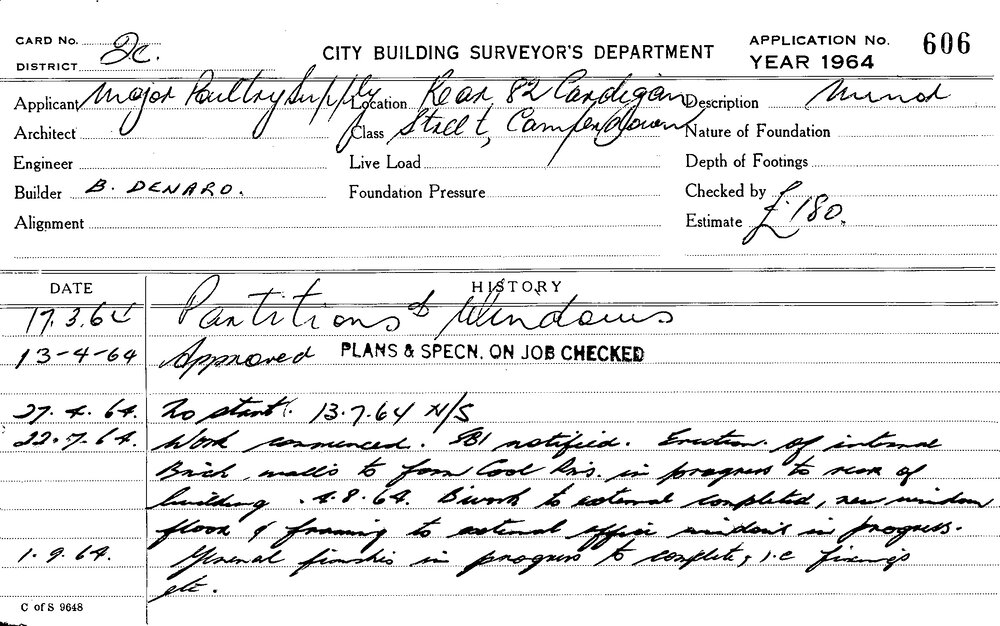 CARD No. 2c.
DISTRICT
CITY BUILDING SURVEYOR'S DEPARTMENT
APPLICATION No. 606
YEAR 1964
Applicant Major Poultry Supply Location Rear 82 Cardigan Description Minor
Architect Class Street, Camperdown Nature of Foundation
Engineer Live Load Depth of Footings
Builder B. DENARO. Foundation Pressure Checked by
Alignment Estimate £180.
DATE HISTORY
17.3.64 Partitions & Windows
13-4-64 Approved PLANS & SPECN. ON JOB CHECKED
27.4.64. No start. 13.7.64 N/S
22.7.64. Work commenced. notified. Erection of internal
Brick walls to form Cool Rms. in progress to rear of
building. 4.8.64. B'work to external completed, new window
floor & framing to external office windows in progress.
1.9.64. General finishes in progress to complete, i.e fixings
etc.
C of S 9648